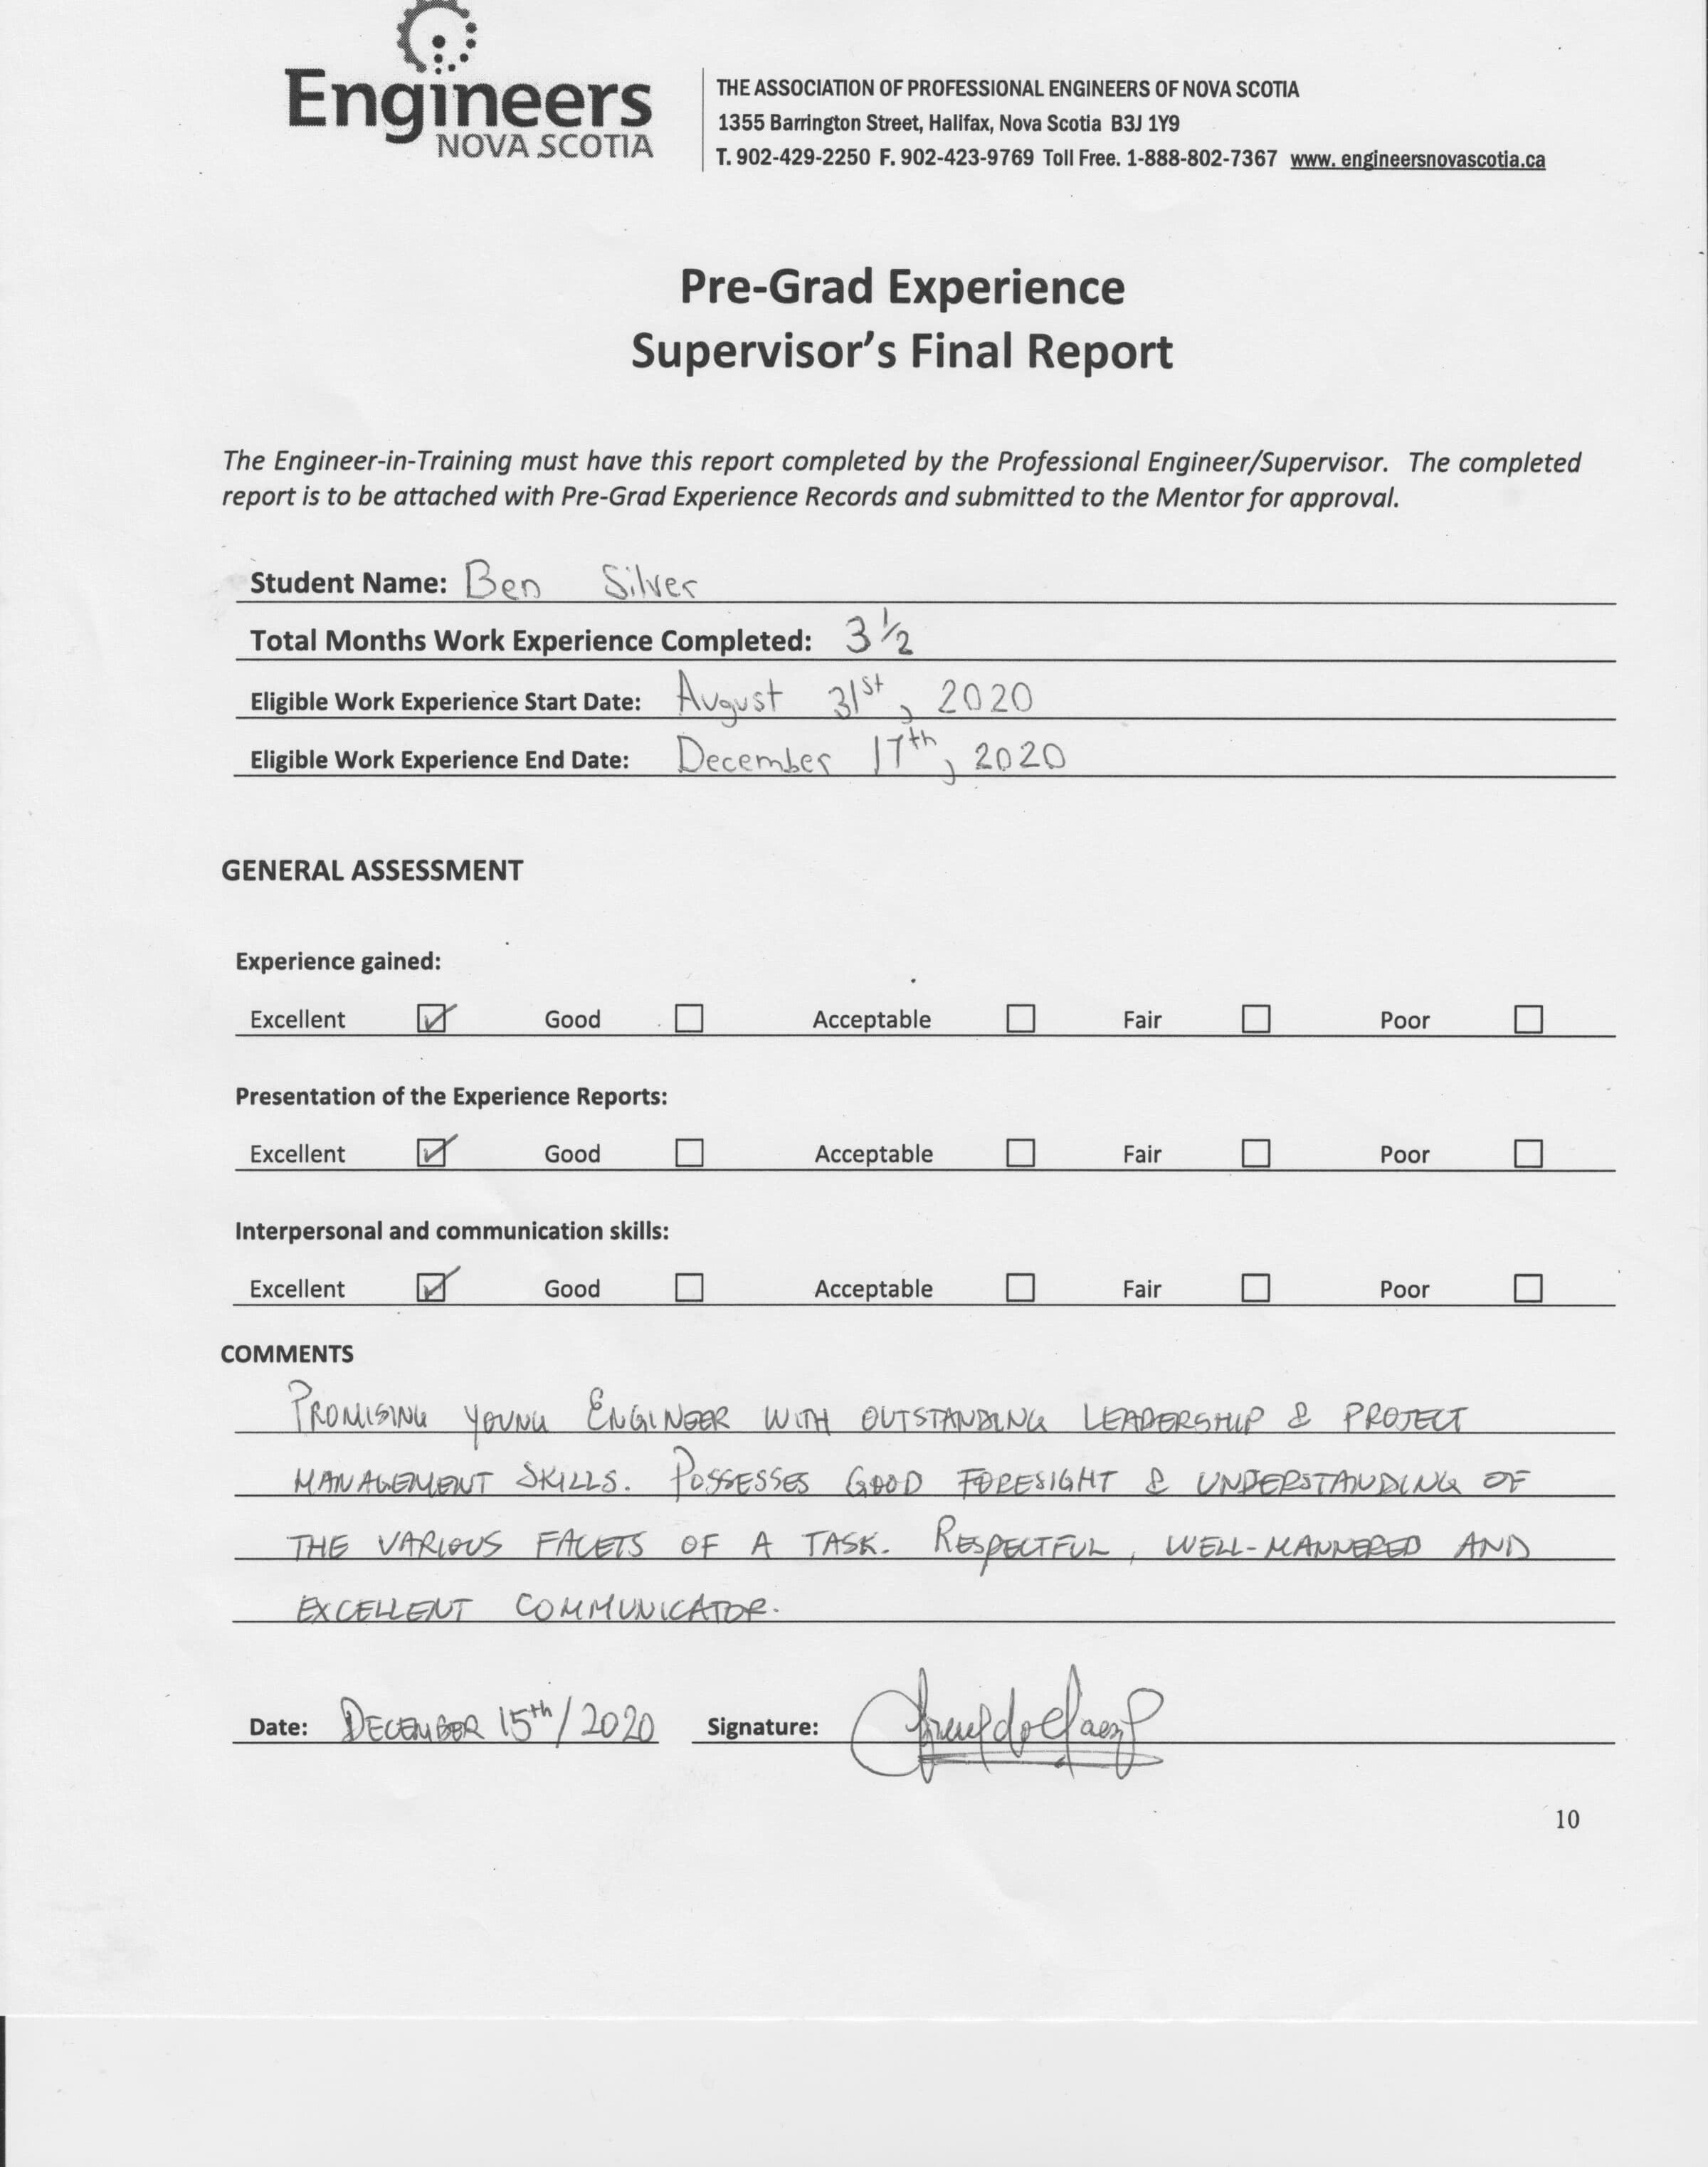 Engineers
NOVA SCOTIA
THE ASSOCIATION OF PROFESSIONAL ENGINEERS OF NOVA SCOTIA
1355 Barrington Street, Halifax, Nova Scotia B3J 1Y9
T. 902-429-2250 F. 902-423-9769 Toll Free. 1-888-802-7367 www.engineersnovascotia.ca
Pre-Grad Experience
Supervisor's Final Report
The Engineer-in-Training must have this report completed by the Professional Engineer/Supervisor. The completed
report is to be attached with Pre-Grad Experience Records and submitted to the Mentor for approval.
Student Name: Ben Silver
Total Months Work Experience Completed: 3 ½
Eligible Work Experience Start Date: August 31st, 2020
Eligible Work Experience End Date: December 17th, 2020
GENERAL ASSESSMENT
Experience gained:
Excellent ☑ Good ☐ Acceptable ☐ Fair ☐ Poor ☐
Presentation of the Experience Reports:
Excellent ☑ Good ☐ Acceptable ☐ Fair ☐ Poor ☐
Interpersonal and communication skills:
Excellent ☑ Good ☐ Acceptable ☐ Fair ☐ Poor ☐
COMMENTS
PROMISING YOUNG ENGINEER WITH OUTSTANDING LEADERSHIP & PROJECT
MANAGEMENT SKILLS. POSSESSES GOOD FORESIGHT & UNDERSTANDING OF
THE VARIOUS FACETS OF A TASK. RESPECTFUL, WELL-MANNERED AND
EXCELLENT COMMUNICATOR.
Date: DECEMBER 15th/2020 Signature:
10